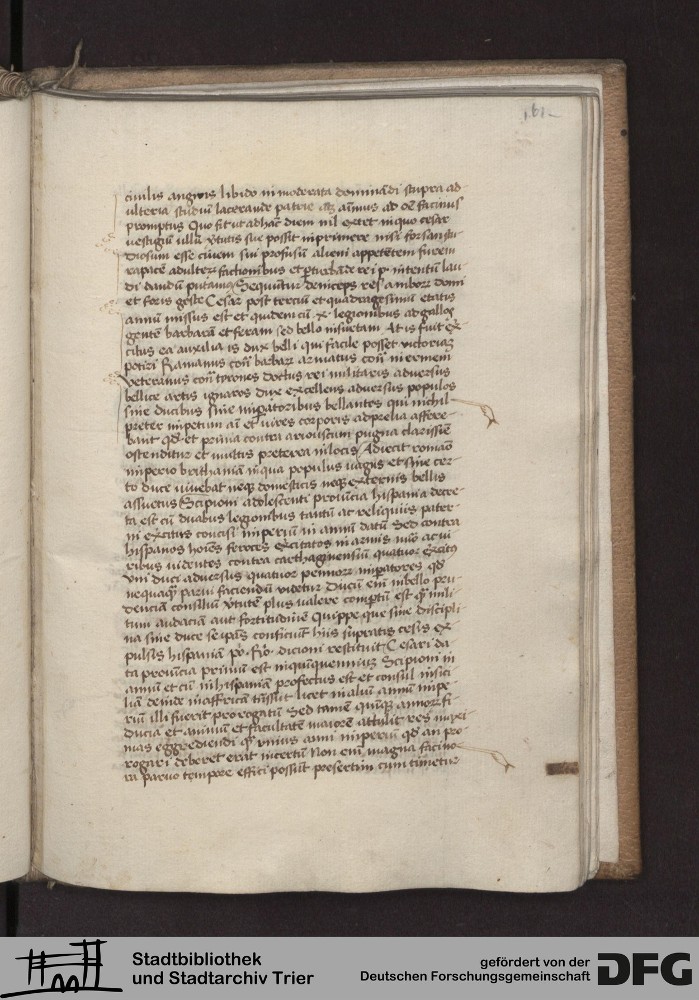 161
ciuilis anguis libido inmoderata dominādi stupra ad
ulteria studiū lacerande patrie atq; aīmus ad oē facinus
promptus Quo fit ut adhāc diem nil extet in quo cesar
vestigiū ullū v̄tutis sue possit inprimere nisi forsan stu
diosum esse ciuem siu profusiū alieni appetētem furem
rapacē adulterū factionibus et p̄turbāde rei p. intentū lau
di dandū putamus Sequūtur deniceps res amborꝫ domi
et foris geste Cesar post terciū et quadragesimū etatis
annū missus est et quidem cū .x. legionibus ad gallos
gentē barbarā et feram sed bello insuetam At is fuit ex
citus ea auxilia is dux belli qui facile posset victoriaꝫ
potiri Romanus cont̄ barbarꝫ armatus cont̄ inermem
Veteranus cont̄ tyrones doctus rei militaris aduersus
bellice artis ignaros dux excellens aduersus populos
sine ducibus sine imp̄atoribus bellantes qui nichil
preter impetum aī et vires corporis ad prelia affere
bant qd̄ et prima contra ariouistum pugna clarissīe
ostenditur et multis preterea in locis Adiecit romāo
imperio brithaniā in qua populus vagus et sine cer
to duce viuebat neqꝫ domesticis neqꝫ externis bellis
assuetus Scipioni adolescenti prouīcia hispania decre
ta est cū duabus legionibus tantū ac reliquiis pater
ni excitus concisi imperiū in annū datū Sed contra
hispanos hoīes feroces exercitatos in armis
ribus videntes contra carthaginensiū quatuor excitꝰ
vni duci aduersus quatuor pennorꝫ imp̄atores qd̄
nequaq̄ parui faciendū videtur Ducū enī in bello pru
denciā consiliū v̄tutē plus valere comp̄tū est q̄ mili
tum audaciā aut fortitudinē Quippe que sine discipli
na sine duce se ip̄as conficiūt hiis supratis cesis ex
pulsis hispaniā po. Ro. dicioni restituit Cesari da
ta prouīcia primū est in quinquenniuꝫ Scipioni in
annū et cū in hispaniā profectus est et consul in sici
liā deinde in affricā t̄nsiit licet in aliū annū impe
riū illi fuerit prorogatū Sed tamē quinqꝫ annorꝫ fi
ducia et animū et facultatē maiorē attulit res maxi
mas eggrediendi q̄ vnius anni imperiū qd̄ an pro
rogari deberet erat incertū Non enī magna facino
ra paruo tempore effici possūt presertim cum timetur
Stadtbibliothek
und Stadtarchiv Trier
gefördert von der
Deutschen Forschungsgemeinschaft
DFG